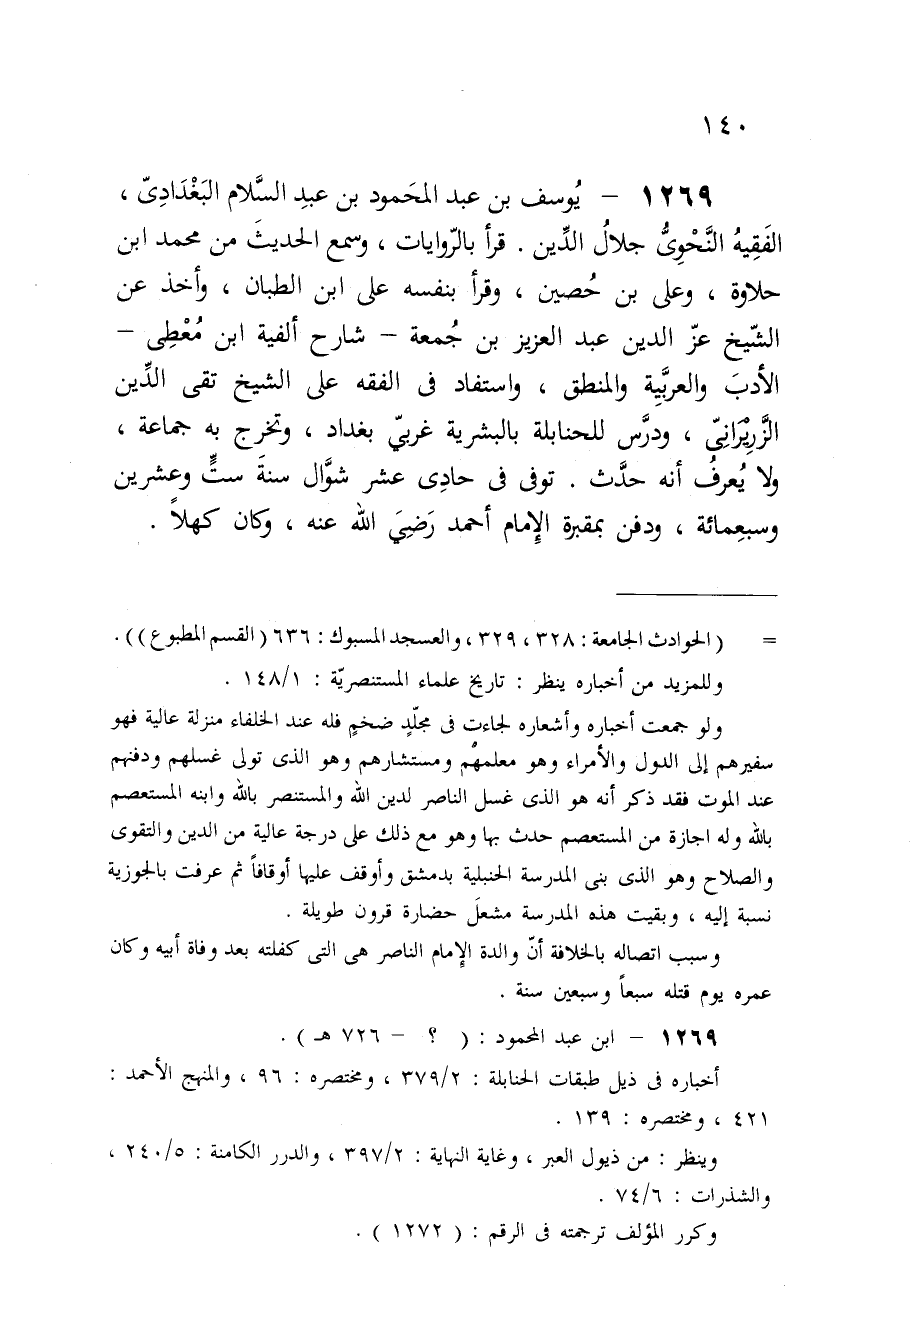 ١٤٠
١٢٦٩ – يُوسف بن عبد المحَمود بن عبدِ السَّلام البَغْدَادِىّ ،
الفَقِيهُ النَّحْوِىُّ جلالُ الدِّين . قرأ بالرّوايات ، وسمع الحديثَ من محمد ابن
حلاوة ، وعلى بن حُصين ، وقرأ بنفسه على ابن الطبان ، وأخذ عن
الشّيخ عزّ الدين عبد العزيز بن جُمعة – شارح ألفية ابن مُعْطِى –
الأدبَ والعربَّية والمنطق ، واستفاد فى الفقه على الشيخ تقى الدِّين
الزَّرِيْرَانِىّ ، ودرَّس للحنابلة بالبشرية غربىّ بغداد ، وتخرج به جماعة ،
ولا يُعرفُ أنه حدَّث . توفى فى حادِى عشر شوَّال سنةَ ستٍّ وعشرين
وسبعِمائة ، ودفن بمقبرة الإِمام أحمد رَضِيَ الله عنه ، وكان كهلاً .
= ( الحوادث الجامعة : ٣٢٨ ، ٣٢٩ ، والعسجد المسبوك : ٦٣٦ ( القسم المطبوع ) ) .
وللمزيد من أخباره ينظر : تاريخ علماء المستنصريّة : ١٤٨/١ .
ولو جمعت أخباره وأشعاره لجاءت فى مجلّدٍ ضخمٍ فله عند الخلفاء منزلة عالية فهو
سفيرهم إلى الدول والأمراء وهو معلمهُم ومستشارهم وهو الذى تولى غسلهم ودفنهم
عند الموت فقد ذكر أنه هو الذى غسل الناصر لدين الله والمستنصر بالله وابنه المستعصم
بالله وله اجازة من المستعصم حدث بها وهو مع ذلك على درجة عالية من الدين والتقوى
والصلاح وهو الذى بنى المدرسة الحنبلية بدمشق وأوقف عليها أوقافاً ثم عرفت بالجوزية
نسبة إليه ، وبقيت هذه المدرسة مشعلَ حضارة قرون طويلة .
وسبب اتصاله بالخلافة أنّ والدة الإِمام الناصر هى التى كفلته بعد وفاة أبيه وكان
عمره يوم قتله سبعاً وسبعين سنة .
١٢٦٩ – ابن عبد المحمود : ( ؟ – ٧٢٦ هـ ) .
أخباره فى ذيل طبقات الحنابلة : ٣٧٩/٢ ، ومختصره : ٩٦ ، والمنهج الأحمد :
٤٢١ ، ومختصره : ١٣٩ .
وينظر : من ذيول العبر ، وغاية النهاية : ٣٩٧/٢ ، والدرر الكامنة : ٢٤٠/٥ ،
والشذرات : ٧٤/٦ .
وكرر المؤلف ترجمته فى الرقم : ( ١٢٧٢ ) .